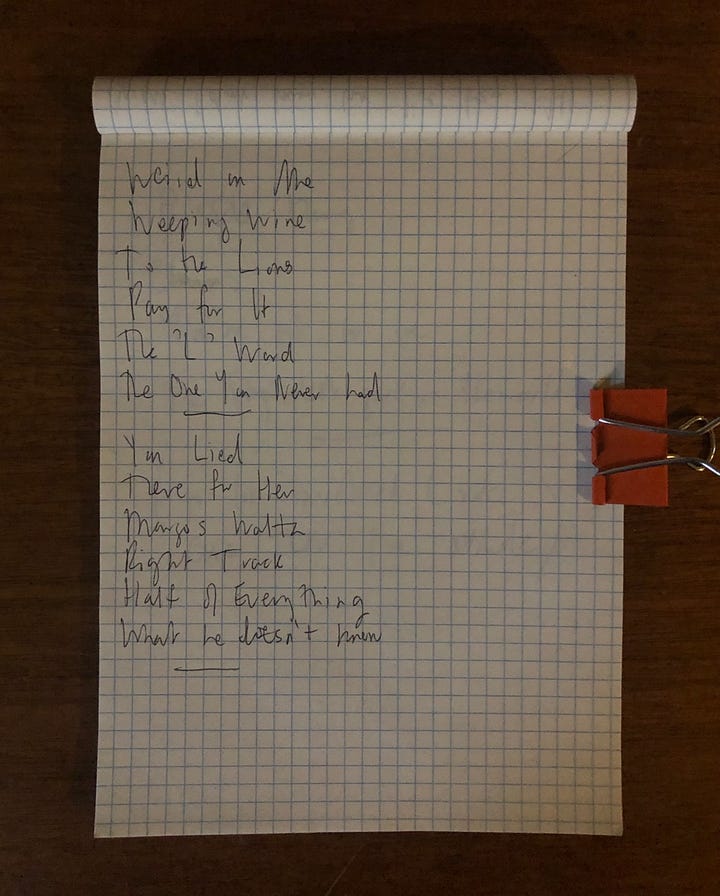 Weird on Me
Weeping Wine
To the Lions
Pay for It
The "L" Word
The One You Never had
You Lied
There for Her
Margo's Waltz
Right Track
Half of Everything
What he doesn't know